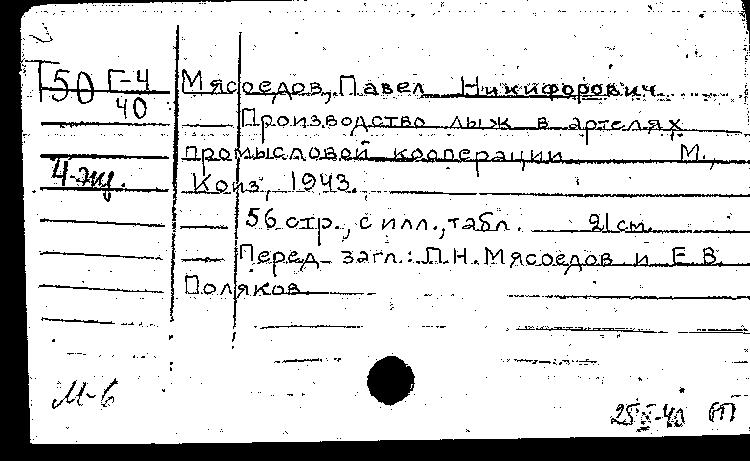 Г50 Г-4 Мясоедов, Павел Никифорович
40
Производство лыж в артелях
промысловой кооперации М.,
4-экз. Коиз, 1943.
56 стр., с илл., табл. 21 см.
Перед загл.: П.Н. Мясоедов и Е.В.
Поляков
М-6